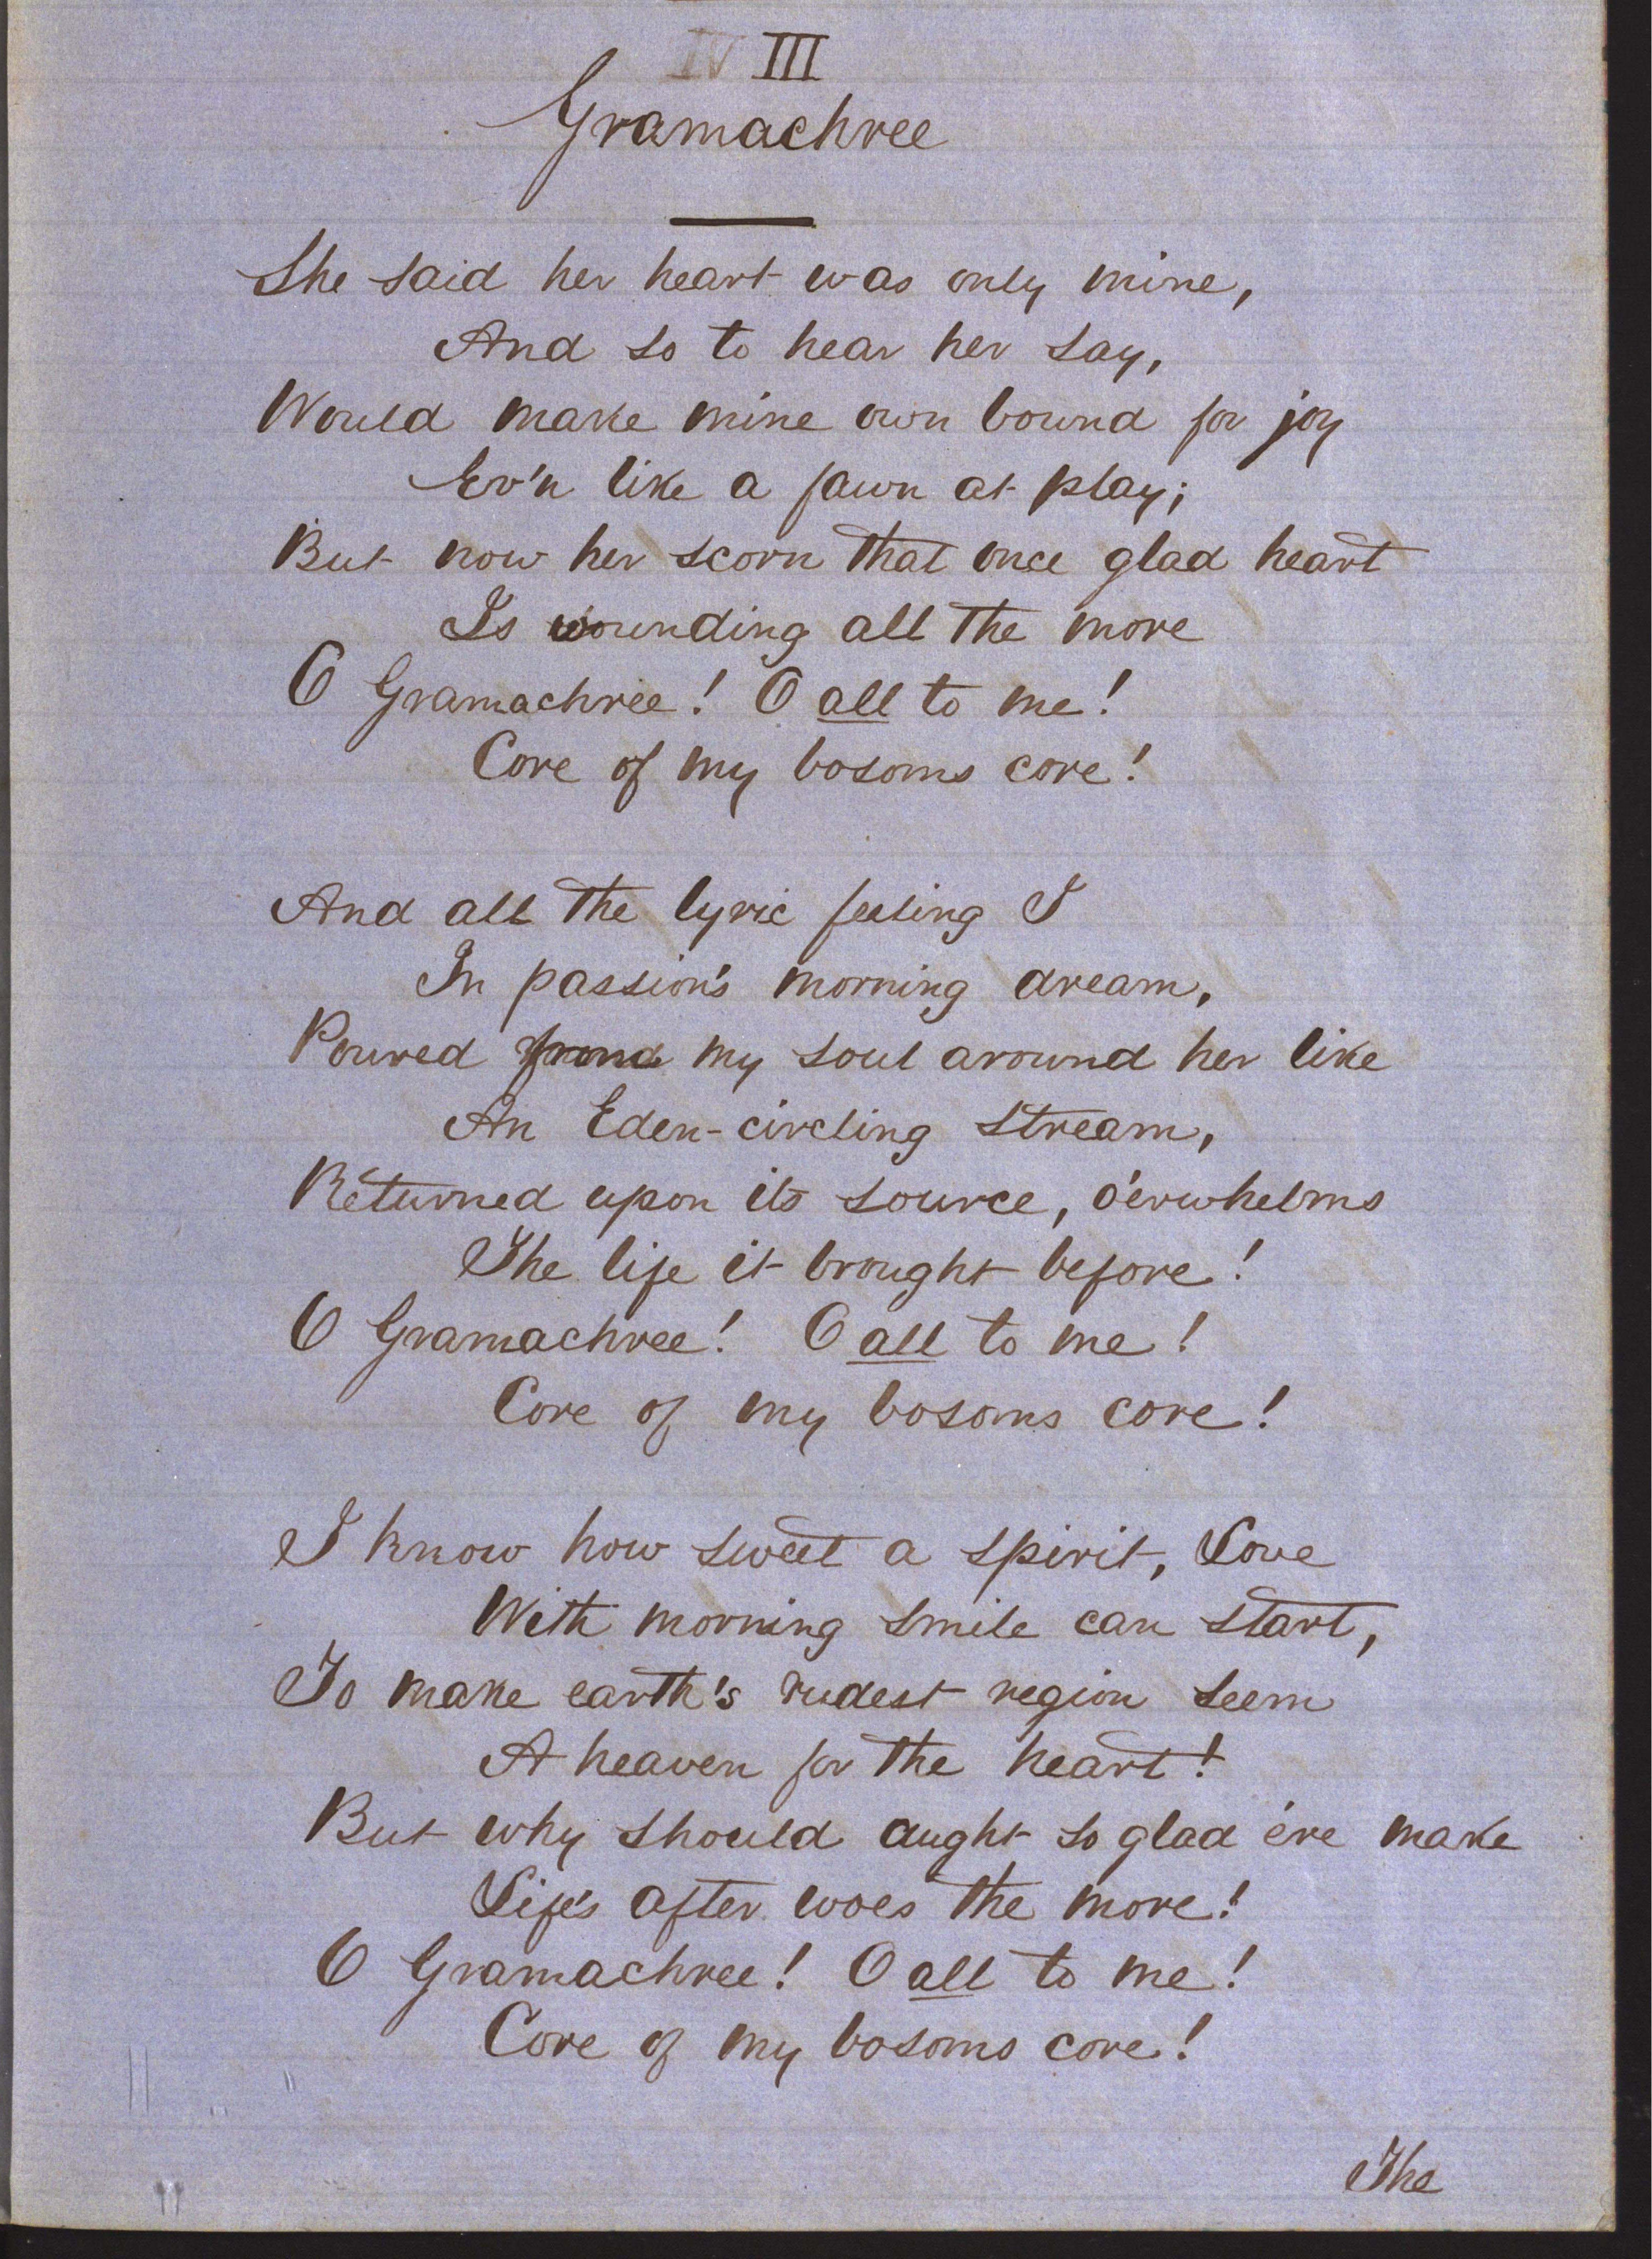 IV III
Gramachree
She said her heart was only mine,
And so to hear her say,
Would make mine own bound for joy
Ev'n like a fawn at play;
But now her scorn that once glad heart
Is wounding all the more
O Gramachree! O all to me!
Core of my bosoms core!
And all the lyric feeling I
In passion's morning dream,
Poured from my soul around her like
An Eden-circling stream,
Returned upon its source, o'erwhelms
The life it brought before!
O Gramachree! O all to me!
Core of my bosoms core!
I know how sweet a spirit, Love
With morning smile can start,
To make earth's rudest region seem
A heaven for the heart!
But why should aught so glad e're make
Life's after woes the more!
O Gramachree! O all to me!
Core of my bosoms core!
The